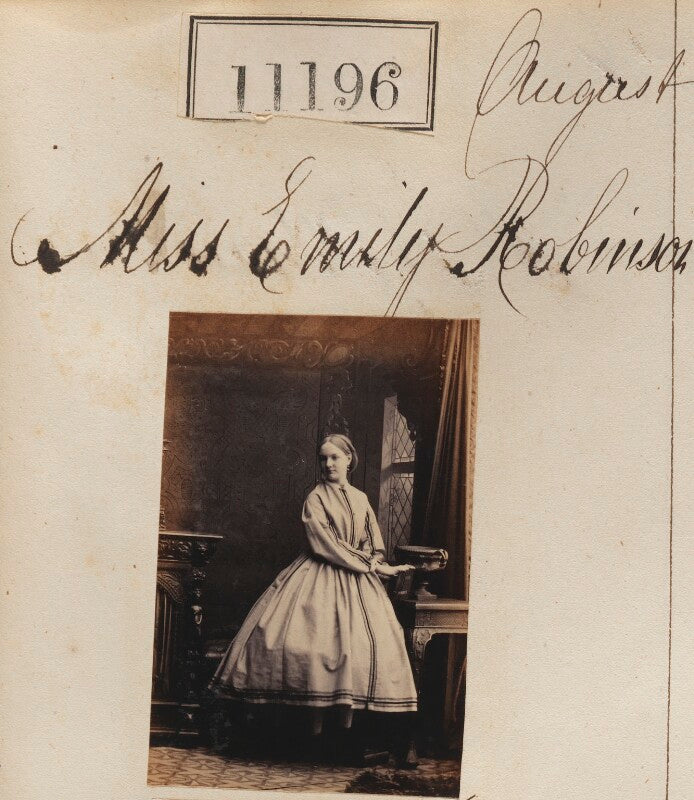 11196
August
Miss Emily Robinson